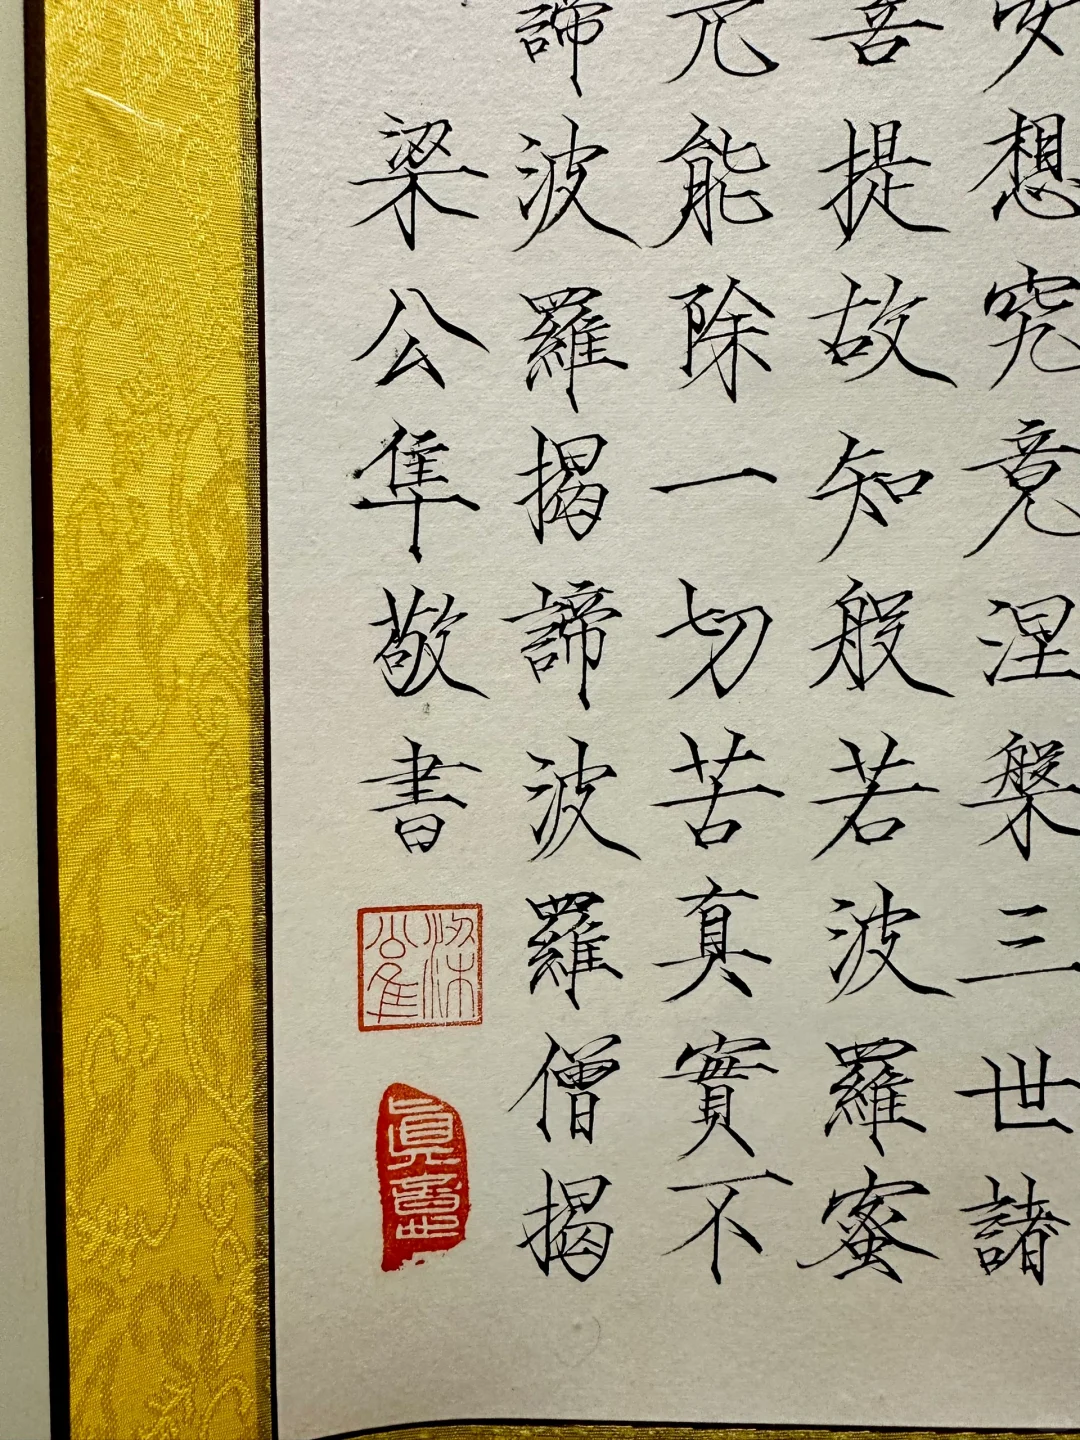 想究竟涅槃三世諸
菩提故知般若波羅蜜
咒能除一切苦真實不
諦波羅揭諦波羅僧揭
梁公隼敬書
梁公隼